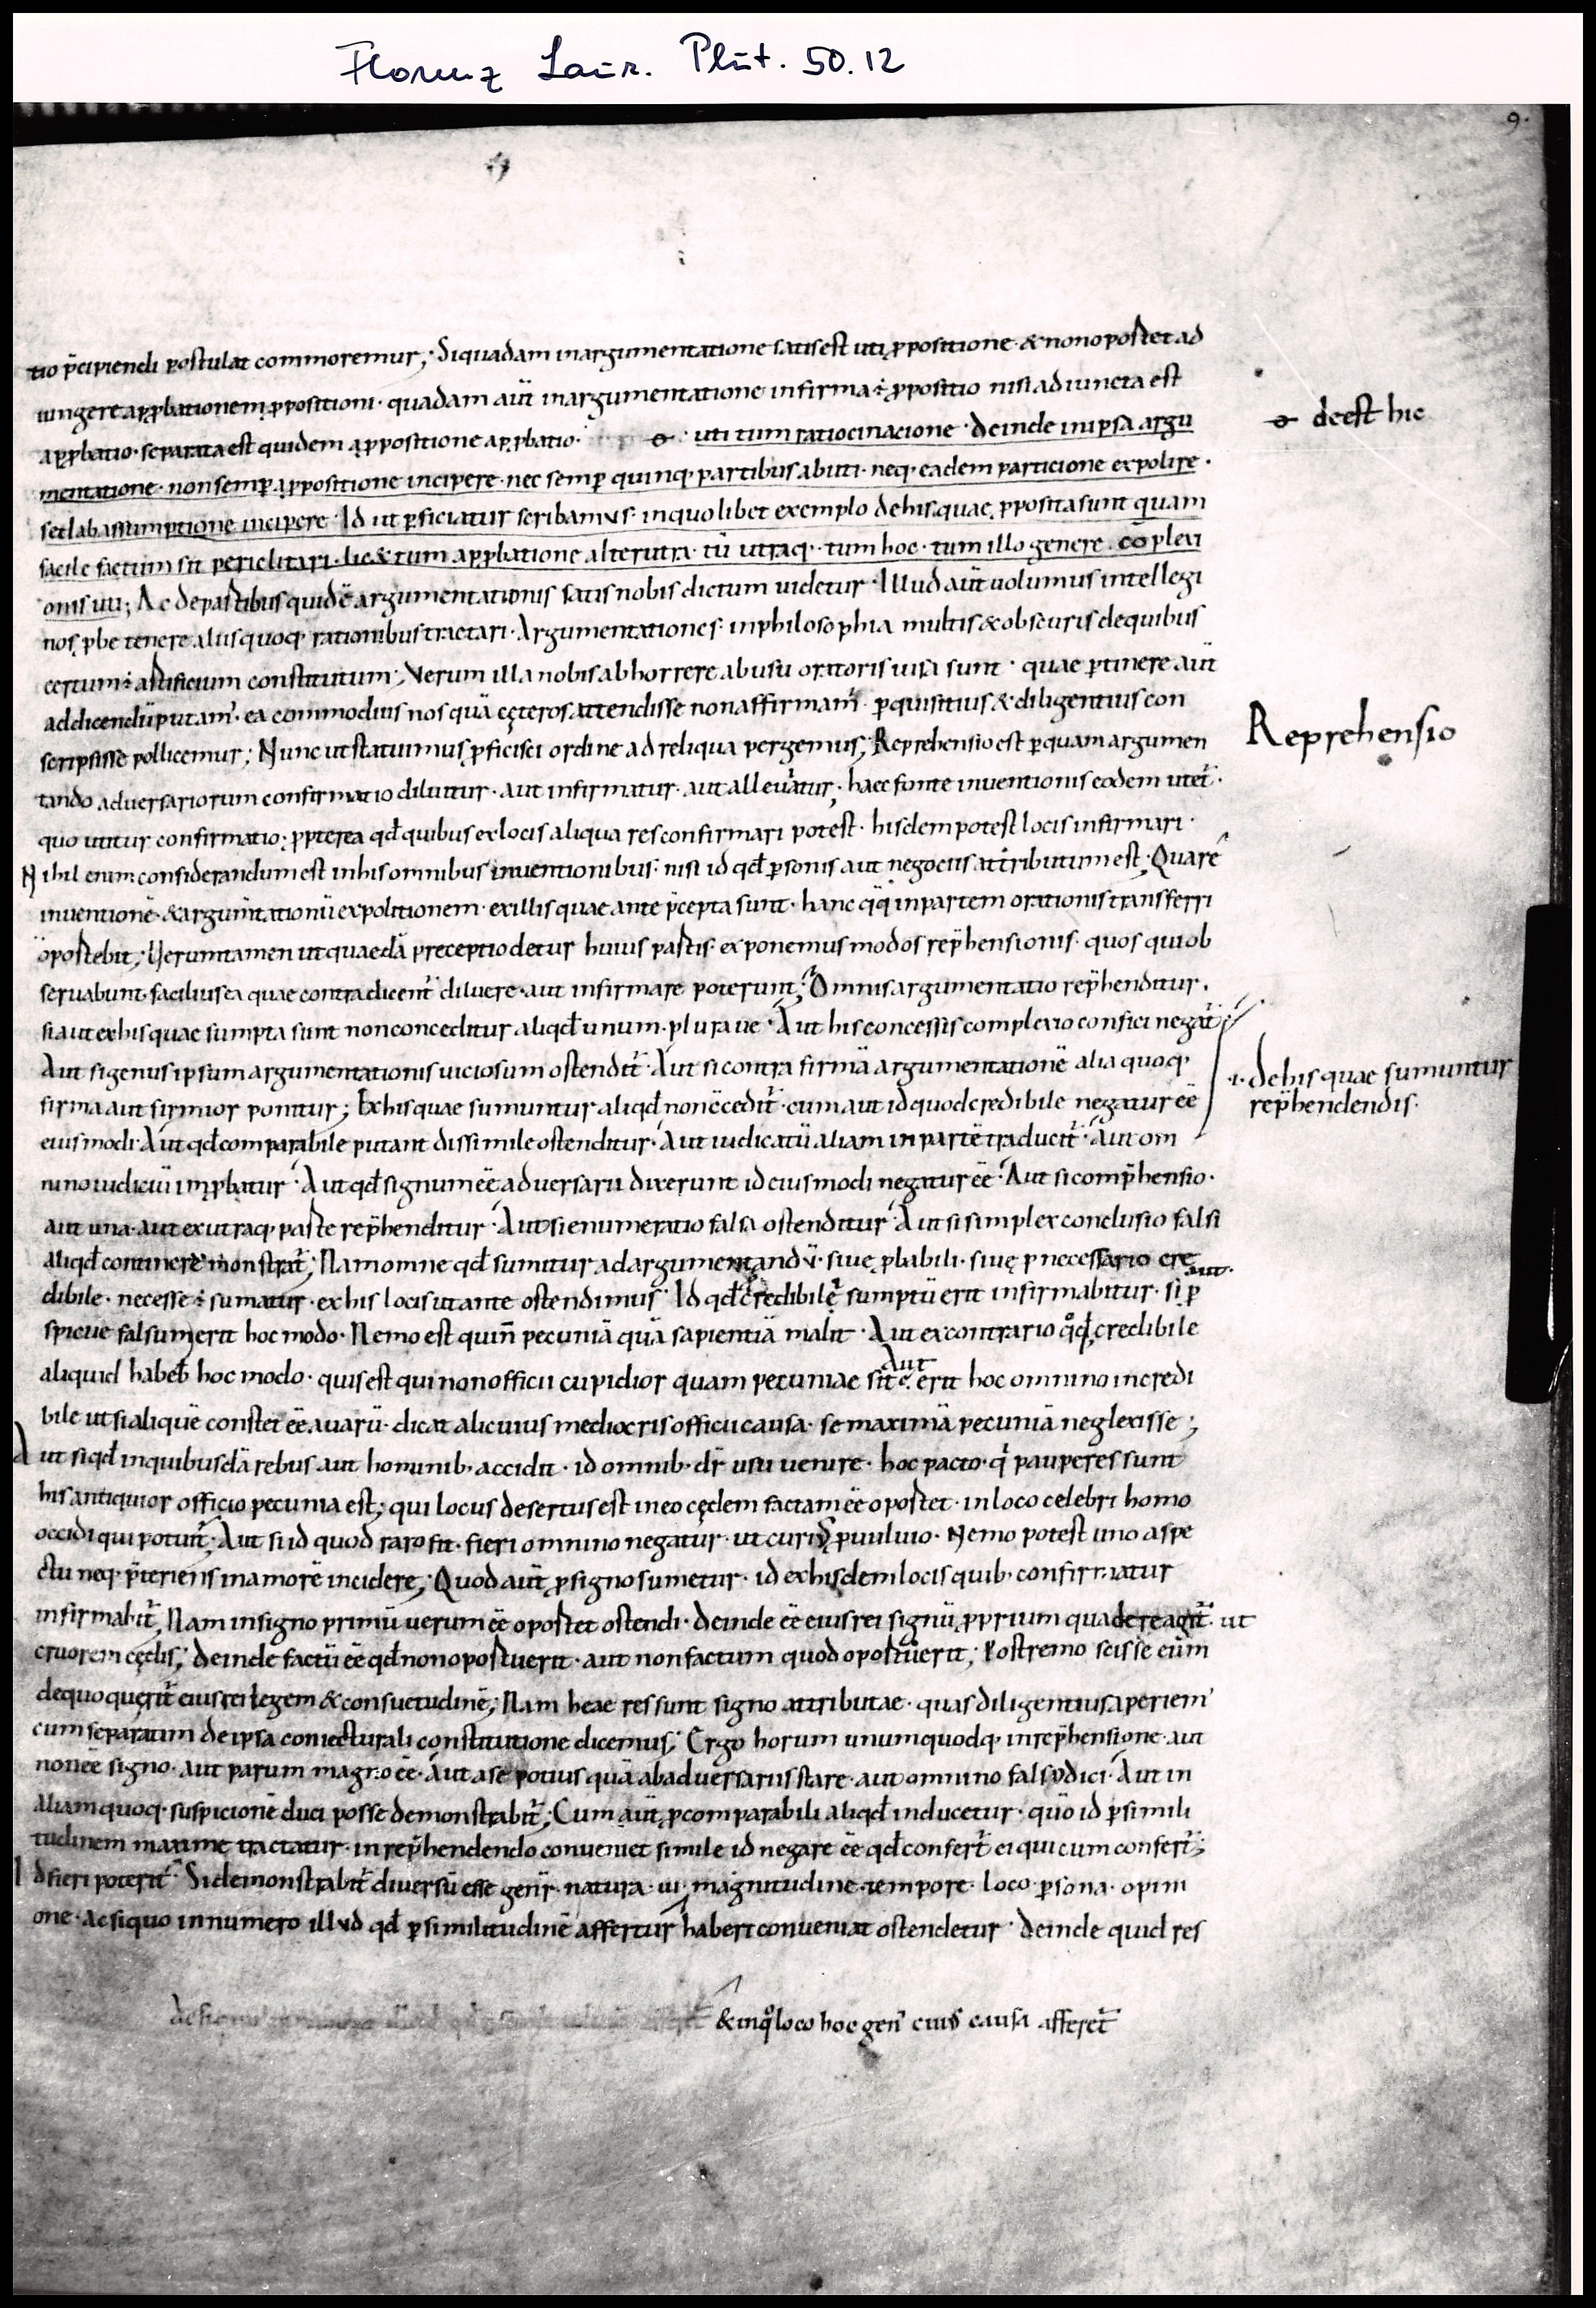 Florenz Laur. Plut. 50.12
9.
tio p̄cipiendi postulat commoremur; Siquadam inargumentatione satisest uti ꝓpositione & nonoportet ad
iungere apꝓbationem ꝓpositioni · quadam aūt inargumentatione infirma ÷ ꝓpositio nisi adiuncta est
apꝓbatio · separata est quidem aꝓpositione apꝓbatio · uti tum ratiocinacione · deinde inipsa argu
deest hic
mentatione · nonsemꝑ aꝓpositione incipere · nec semꝑ quinq· partibus abuti · neq· eadem particione expolire ·
sed ab assumptione incipere · Id ut ꝑficiatur scribamus · inquolibet exemplo dehis quae ꝓposita sunt quam
facile factum sit periclitari · lic& tum apꝓbatione alterutra · tū utraq· · tum hoc · tum illo genere · cōplexi
onis uti; Ac departibus quidē argumentationis satis nobis dictum uidetur · Illud aūt uolumus intellegi
nos ꝓbe tenere aliis quoq· rationibus tractari · Argumentationes · inphilosophia multis & obscuris dequibus
certum ÷ artificium constitutum; Verum illa nobis abhorrere abusu oratoris uisa sunt · quae ꝑtinere aūt
addicendū putam̄ · ea commodius nos quā cęteros attendisse non affirmam̄ · ꝑquisitius & diligentius con
scripsisse pollicemur; Nunc ut statuimus ꝓficisci ordine ad reliqua pergemus; Reprehensio est ꝑquam argumen
Reprehensio
tando adversariorum confirmatio diluitur · aut infirmatur · aut alleuatur · haec fonte inuentionis eodem utet̄ ·
quo utitur confirmatio · ꝓpterea qd̄ quibus exlocis aliqua res confirmari potest · hisdem potest locis infirmari ·
Nihil enim considerandum est inhis omnibus inuentionibus · nisi id qd̄ ꝑsonis aut negociis attributum est · Quare
inuentionē · & argum̄tationū expolitionem · exillis quae ante p̄cepta sunt · hanc q̄q̄ inpartem orationis transferri
oportebit; Veruntamen ut quaedā preceptio detur huius partis · exponemus modos rep̄hensionis · quos qui ob
seruabunt facilius ea quae contra dicent̄ diluere · aut infirmare poterunt; Omnis argumentatio rep̄henditur ·
si aut exhis quae sumpta sunt non conceditur aliqd̄ unum · plura ue · Aut his concessis complexio confici negat̄ ·
Aut si genus ipsum argumentationis uiciosum ostendit̄ · Aut si contra firmā argumentationē alia quoq·
·i· dehis quae sumuntur
firma aut firmior ponitur; Exhis quae sumuntur aliqd̄ non c̄cedit̄ · cum aut id quod credibile negatur eē
rep̄hendendis ·
eiusmodi · Aut qd̄ comparabile putant dissimile ostenditur · Aut iudicatū aliam in partē traducit̄ · Aut om
nino iudiciū imꝓbatur · Aut qd̄ signum eē adversarii dixerunt id eiusmodi negatur eē · Aut si comp̄hensio ·
aut una · aut exutraq· parte rep̄henditur · Aut si enumeratio falsa ostenditur · Aut si simplex conclusio falsi
aliqd̄ continere monstrat̄; Nam omne qd̄ sumitur ad argumentandū · siue ꝓbabili · siue ꝓ necessario cre
aut ·
dibile · necesse ÷ sumatur · ex his locis ut ante ostendimus · Id qd̄ credibile sumptū erit infirmabitur · si ꝑ
spicue falsum erit hoc modo · Nemo est quin̄ pecuniā quā sapientiā malit · Aut ex contrario qd̄ credibile
Aut
aliquid habeb̄ hoc modo · quis est qui non officii cupidior quam pecuniae sit · erit hoc omnino incredi
bile ut si aliquē constet eē auarū · dicat alicuius mediocris officii causa · se maximā pecuniā neglexisse;
Aut si qd̄ inquibusdā rebus aut hominib· accidit · id omnib· dr̄ usu uenire · hoc pacto · q̄ pauperes sunt
his antiquior officio pecunia est; qui locus desertus est in eo cędem factam eē oportet · in loco celebri homo
occidi qui potuit̄; Aut si id quod raro fit · fieri omnino negatur · ut curiꝰ ꝓ uuluio · Nemo potest uno aspe
ctu neq· p̄teriens in amorē incidere; Quod aūt ꝓ signo sumetur · id exhisdem locis quib· confirmatur
infirmabit̄; Nam insigno primū uerum eē oportet ostendi · deinde eē eius rei signū ꝓprium qua de re agit̄ · ut
cruorem cędis; deinde factū eē qd̄ non oportuerit · aut non factum quod oportuerit; Postremo scisse eum
de quo querit̄ eius rei legem & consuetudinē; Nam heae res sunt signo attributae · quas diligentius aperiem̄
cum separatim de ipsa coniecturali constitutione dicemus; Ergo horum unumquodq· inrep̄hensione aut
non eē signo · aut parum magno eē · Aut a se potius quā ab adversariis stare · aut omnino falso dici · Aut in
aliam quoq· suspicionē duci posse demonstrabit̄; Cum aūt ꝓ comparabili aliqd̄ inducetur · quo id ꝑ simili
tudinem maxime tractatur · in rep̄hendendo conueniet simile id negare eē qd̄ confert̄ ei qui cum confert̄;
Id fieri poterit · Si demonstrabit̄ diuersū esse gen̄r · natura · ui · magnitudine · tempore · loco · ꝑsona · opini
one · Ac si quo in numero illud qd̄ ꝑ similitudinē affertur haberi conueniat ostendetur · deinde quid res
& inq̊ loco hoc gen̄ cuiꝰ causa afferet̄